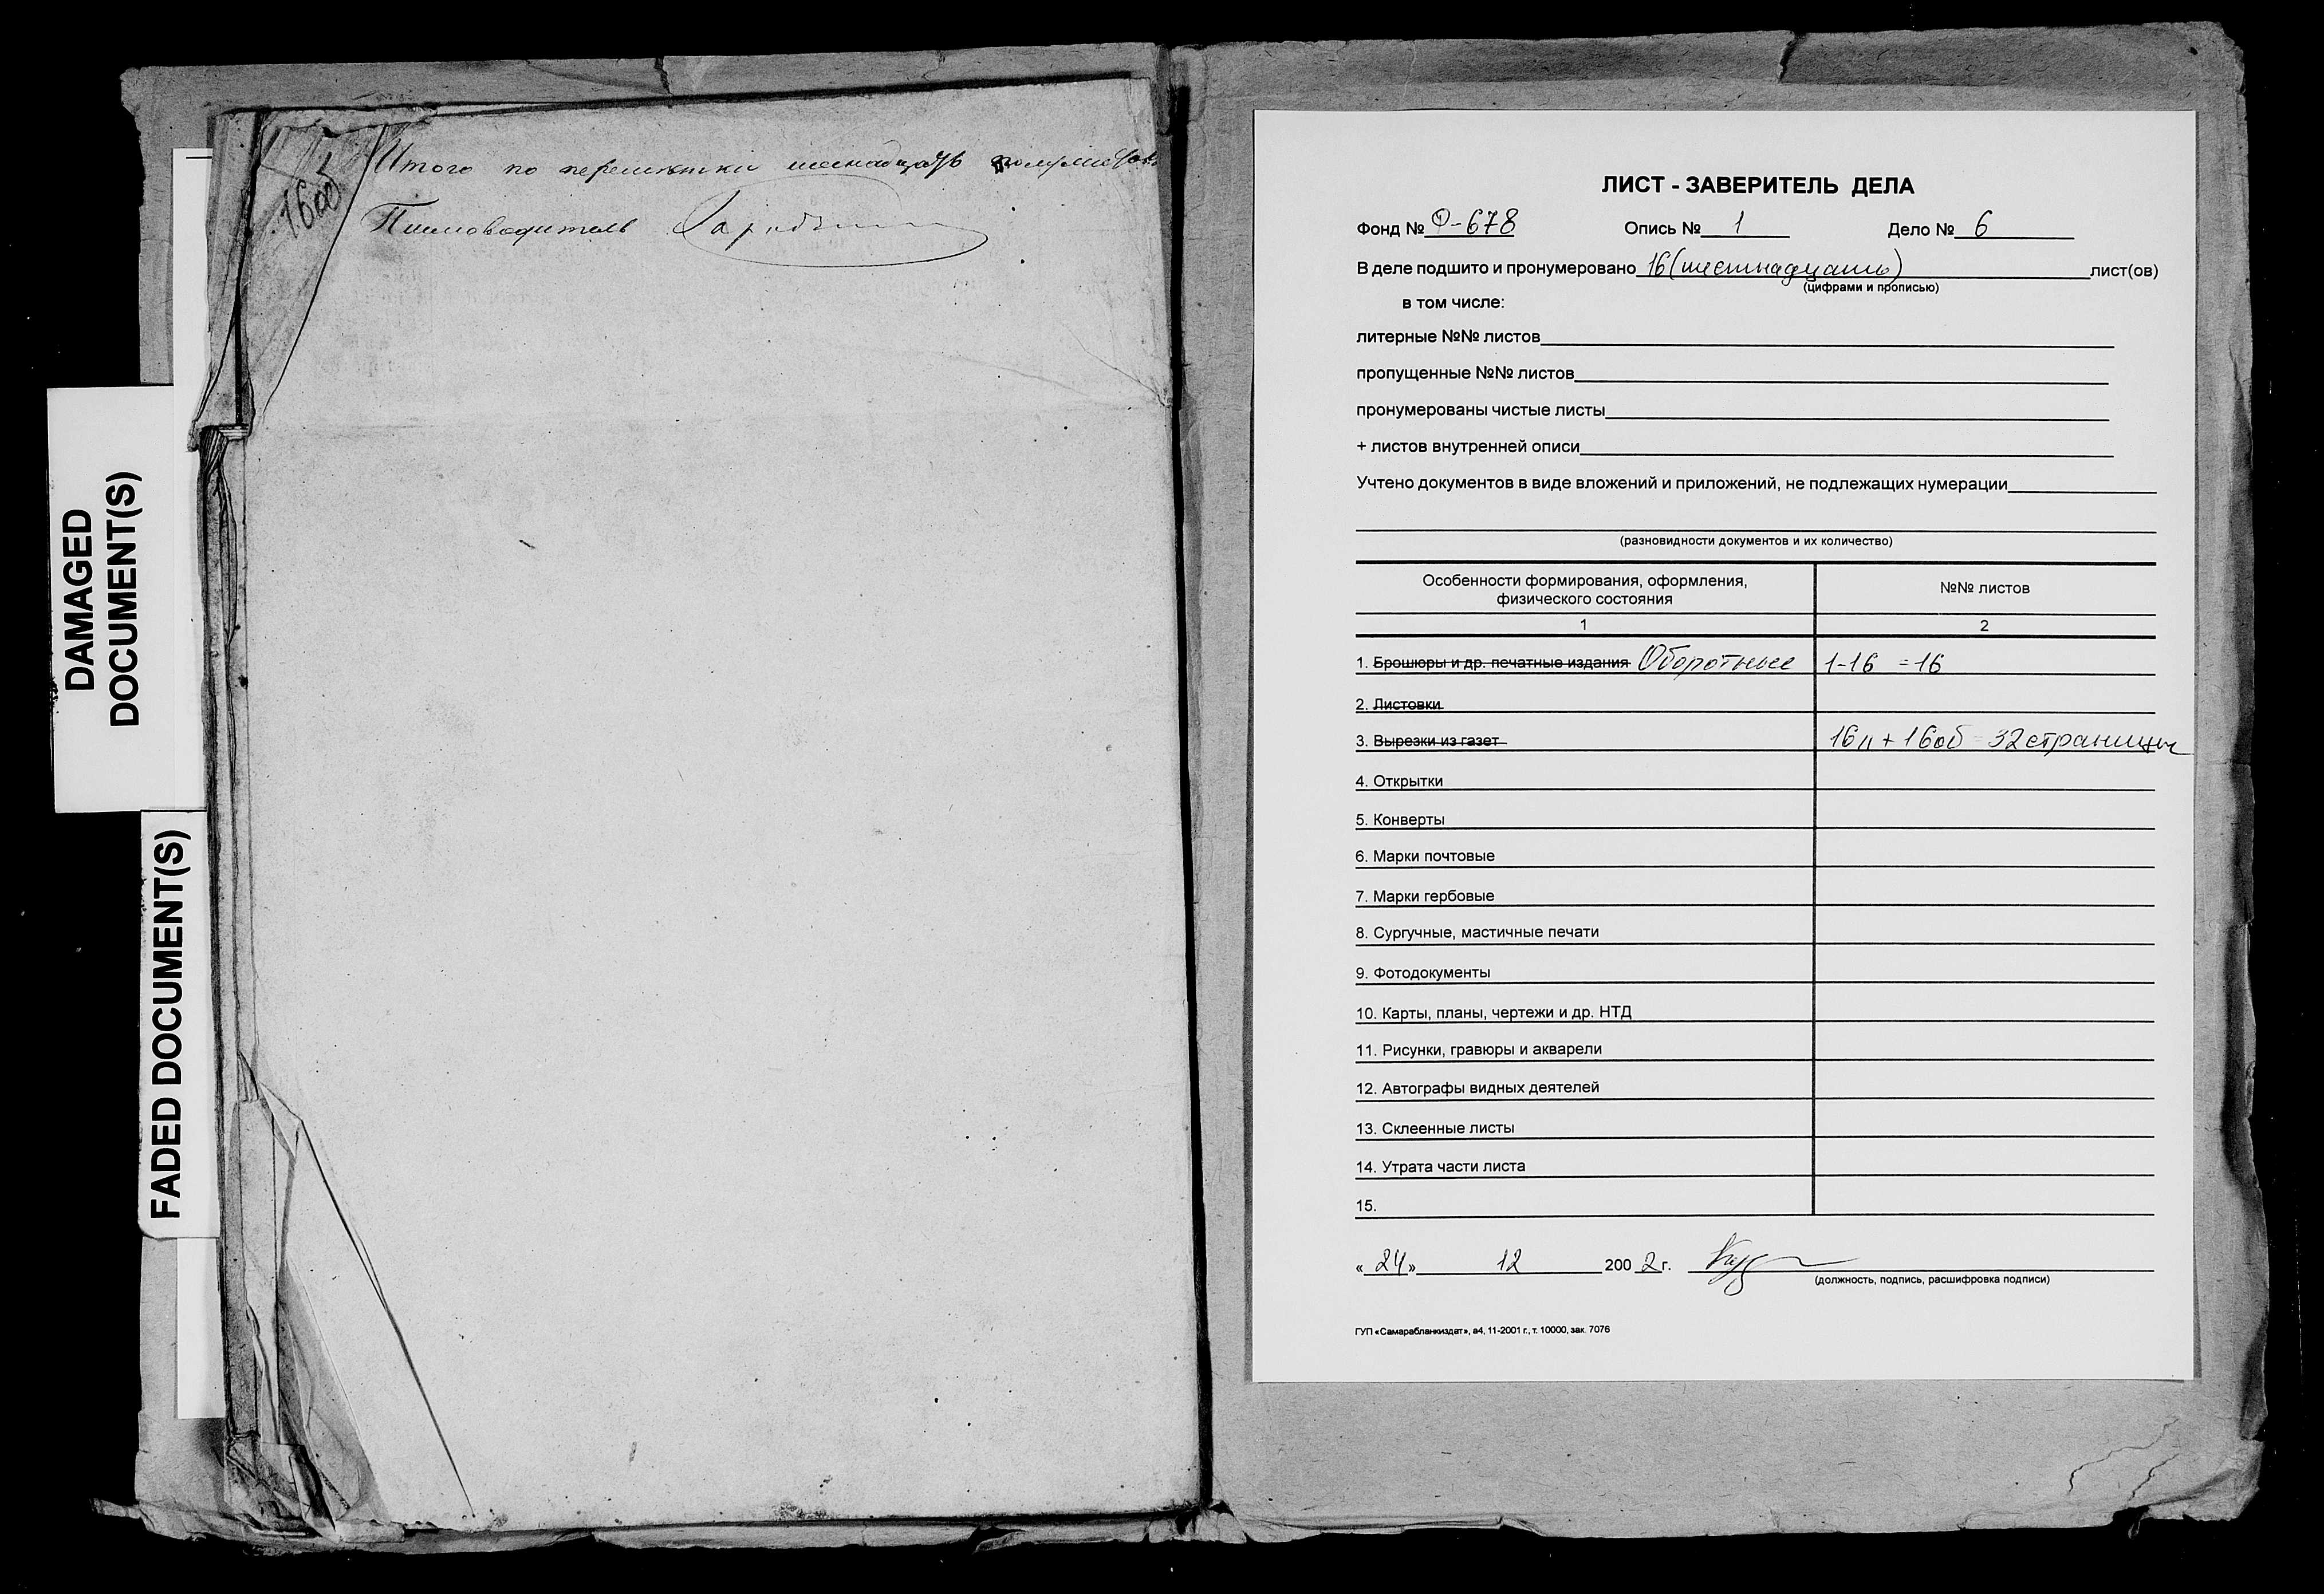 DAMAGED
DOCUMENT(S)
FADED DOCUMENT(S)
16об
Итого по переметки шеснадцать полулистов
Писмоводитель
ЛИСТ - ЗАВЕРИТЕЛЬ ДЕЛА
Фонд № Ф-678 Опись № 1 Дело № 6
В деле подшито и пронумеровано 16 (шестнадцать) лист(ов)
(цифрами и прописью)
в том числе:
литерные №№ листов
пропущенные №№ листов
пронумерованы чистые листы
+ листов внутренней описи
Учтено документов в виде вложений и приложений, не подлежащих нумерации
(разновидности документов и их количество)
Особенности формирования, оформления,
физического состояния
№№ листов
1 2
1. Брошюры и др. печатные издания Оборотные 1-16 =16
2. Листовки
3. Вырезки из газет 16л + 16об = 32 страницы
4. Открытки
5. Конверты
6. Марки почтовые
7. Марки гербовые
8. Сургучные, мастичные печати
9. Фотодокументы
10. Карты, планы, чертежи и др. НТД
11. Рисунки, гравюры и акварели
12. Автографы видных деятелей
13. Склеенные листы
14. Утрата части листа
15.
«24» 12 2002г.
(должность, подпись, расшифровка подписи)
ГУП «Самарабланкиздат», а4, 11-2001 г., т. 10000, зак. 7076